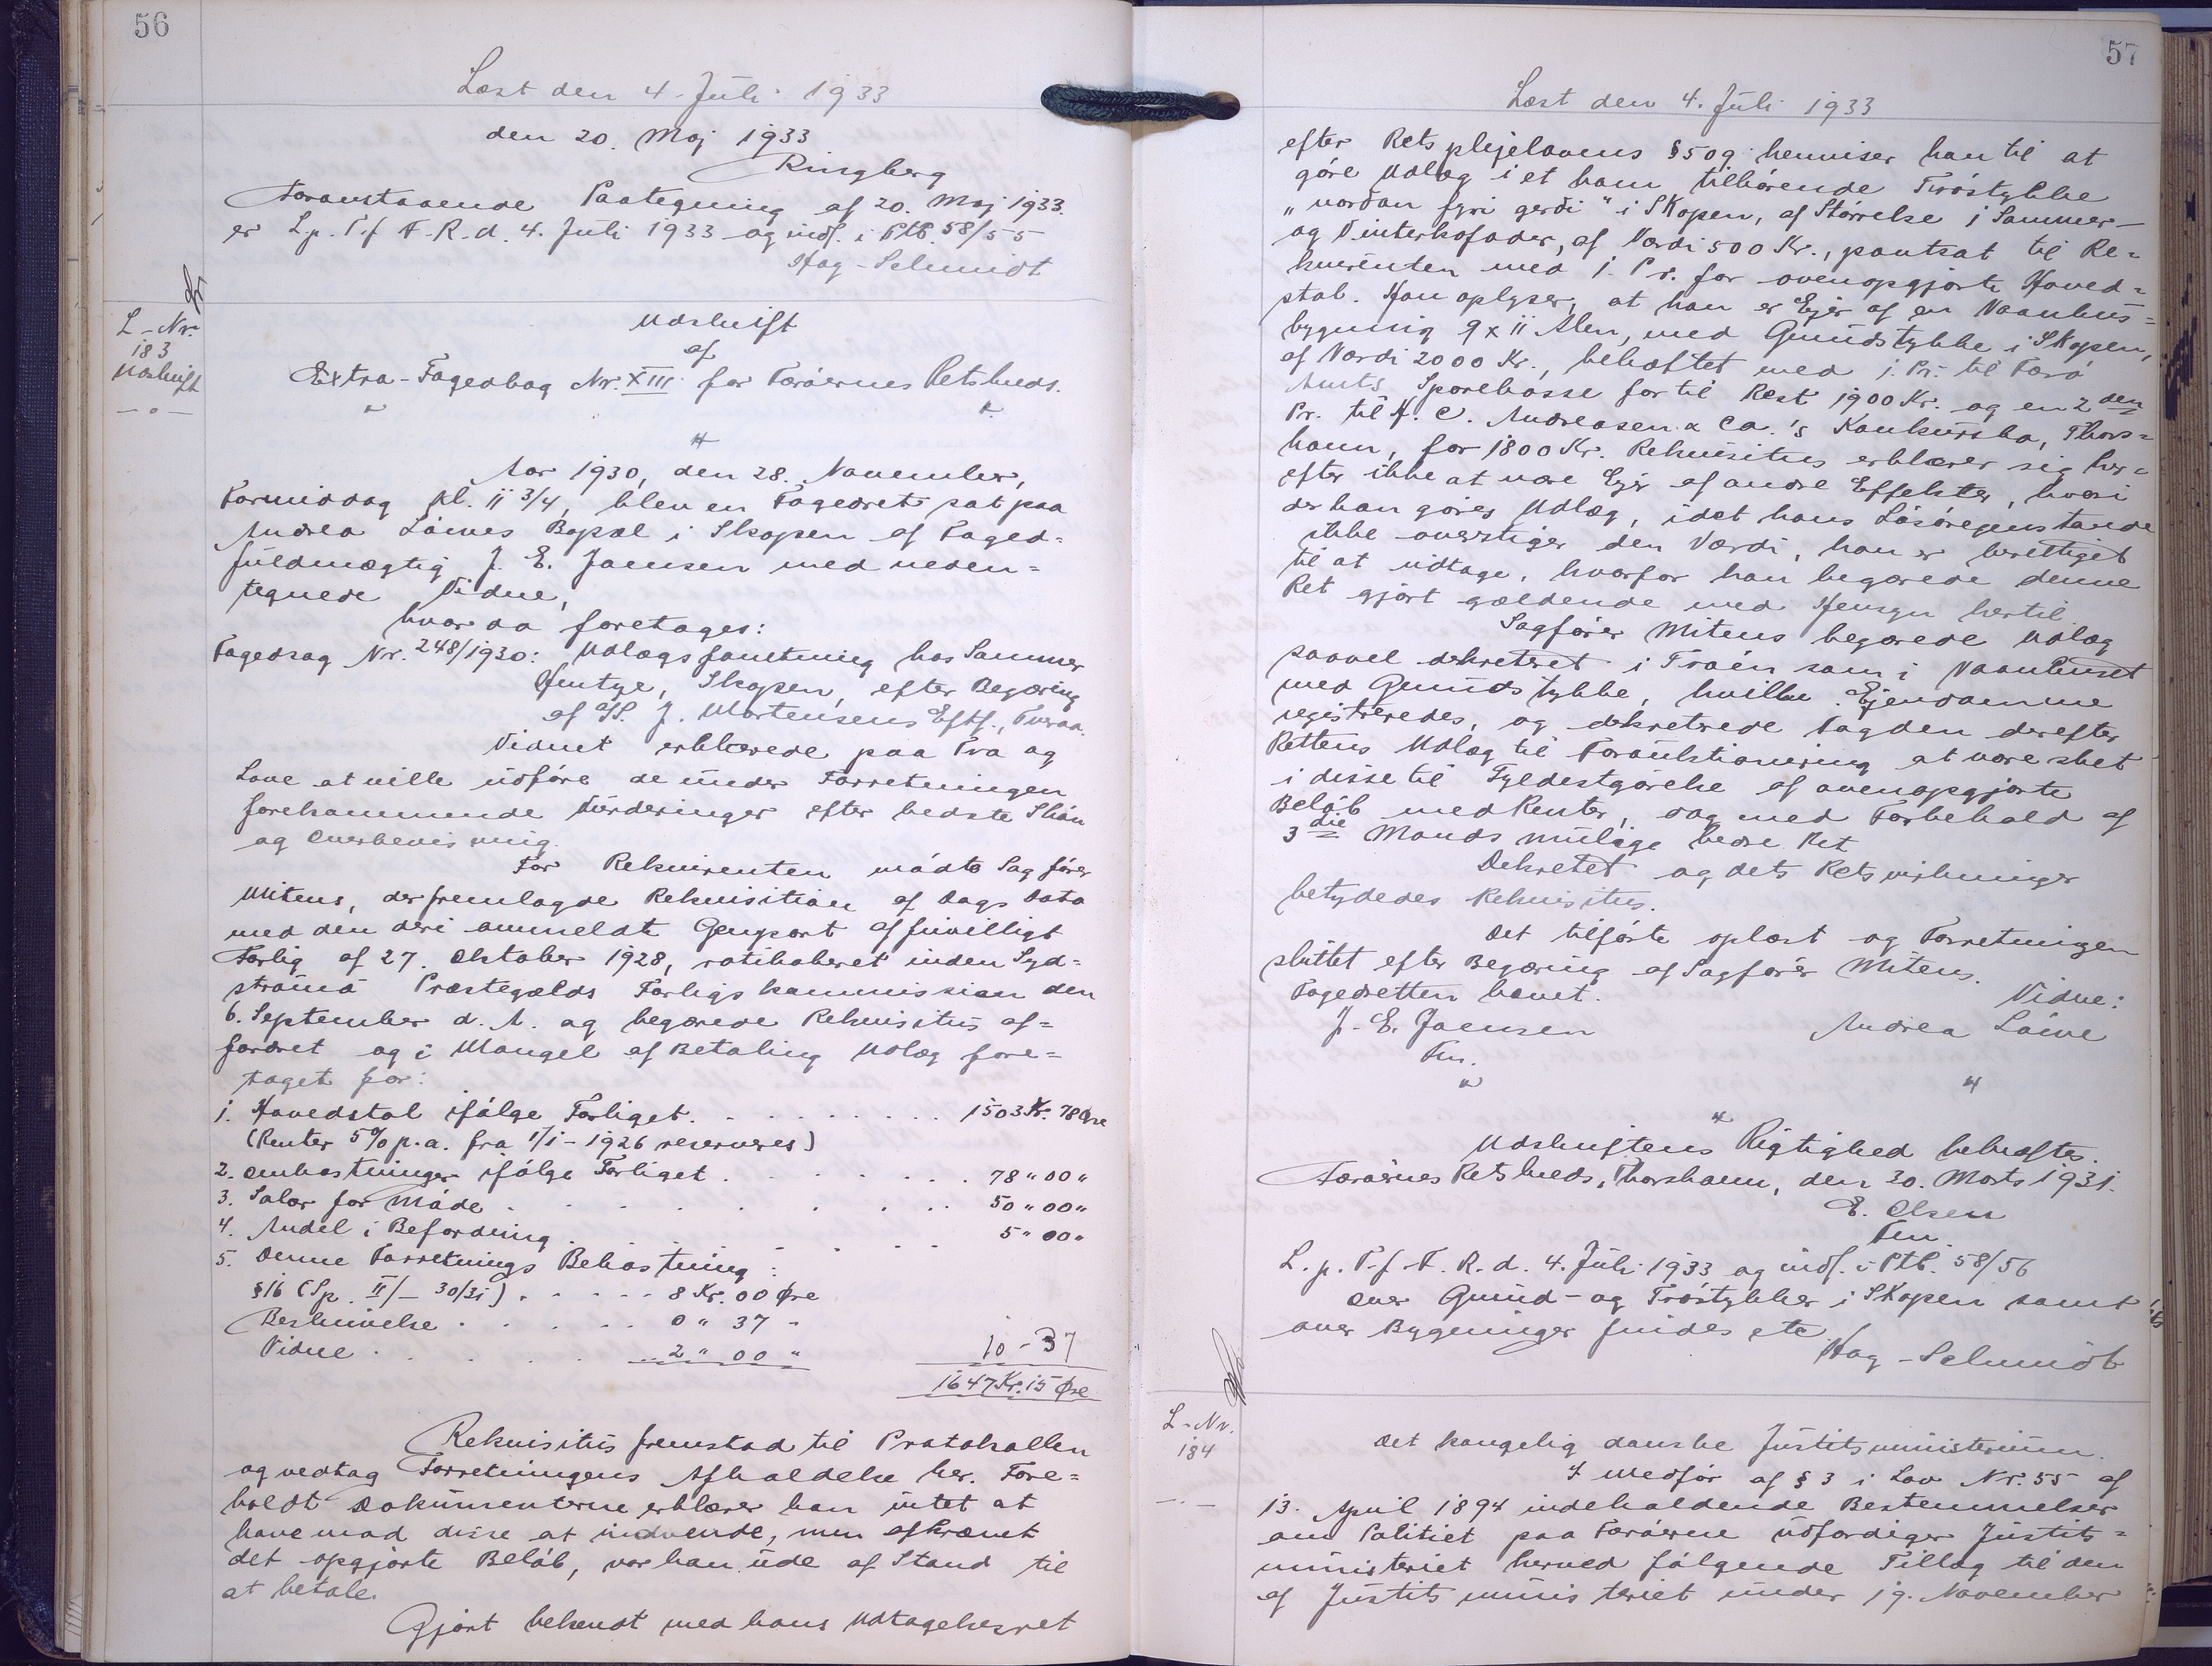 56
Læst den 4. Juli 1933
den 20. Maj 1933
Ringberg
Foranstaaende Paategning af 20. Maj 1933.
er L.p.T.f F.R.d. 4. Juli 1933 og indf. i Ptb. 58/55
Hag-Schmidt
L-Nr.
183
Udskrift
Udskrift
af
Extra-Fogedbog Nr. XIII for Færøernes Retskreds.
Aar 1930, den 28. November,
Formiddag Kl. 11 3/4, blev en Fogedret sat paa
Andrea Láives Bopæl i Skopen af Foged=
fuldmægtig J. E. Joensen med neden=
tegnede Vidne,
hvor da foretages:
Fogedsag Nr. 248/1930: Udlægsforretning hos Sammer
Jentze, Skopen, efter Begæring
af A/S. J. Mortensens Eftf., Tveraa.
Vidnet erklærede paa Tro og
Love at ville udføre de under Forretningen
forekommende Vurderinger efter bedste Skøn
og Overbevisning.
For Rekvirenten mødte Sagfører
Mitens, der fremlagde Rekvisition af Dags Dato
med den deri anmeldte Genpart af frivilligt
Forlig af 27. Oktober 1928, ratihaberet inden Syd=
strømø Præstegælds Forligskommission den
6. September d. A. og begærede Rekvisitus af=
fordret og i Mangel af Betaling Udlæg fore=
taget for:
1. Hovedstol ifølge Forliget. . . . . . . . 1503 Kr. 78 Øre
(Renter 5% p.a. fra 1/1-1926 reserveres)
2. Omkostninger ifølge Forliget . . . . . . 78 " 00 "
3. Salær for Møde . . . . . . . . 50 " 00 "
4. Andel i Befordring . . . . . . . 5 " 00 "
5. Denne Forretnings Bekostning:
§16 (Sp. II/- 30/31) . . . . . 8 Kr. 00 Øre
Beskrivelse . . . . . 0 " 37 "
Vidne . . . . . 2 " 00 " 10 - 37
1647 Kr. 15 Øre
Rekvisitus fremstod til Protokollen
og vedtog Forretningens Afholdelse her. Fore=
holdt Dokumenterne erklærer han intet at
have mod disse at indvende, men afkrævet
det opgjorte Beløb, var han ude af Stand til
at betale.
Gjort bekendt med hans Udtagelsesret
57
Læst den 4. Juli 1933
efter Retsplejelovens §509 henviser han til at
gøre Udlæg i et ham tilhørende Trøstykke
"norðan fyri gerði" i Skopen, af Størrelse 1 Sommer-
og Vinterkofoder, af Værdi 500 Kr., pantsat til Re=
kvirenten med 1. Pr. for ovenopgjorte Hoved=
stol. Han oplyser, at han er Ejer af en Vaanhus=
bygning 9 x 11 Alen, med Grundstykke i Skopen,
af Værdi 2000 Kr., behæftet med 1. Pr. til Færø
Amts Sparekasse for til Rest 1900 Kr. og en 2den
Pr. til H. C. Andreasen & Co.'s Konkursbo, Thors=
havn, for 1800 Kr. Rekvisitus erklærer sig her=
efter ikke at være Ejer af andre Effekter, hvori
der kan gøres Udlæg, idet hans Løsøregenstande
ikke overstiger den Værdi, han er berettiget
til at udtage, hvorfor han begærede denne
Ret gjort gældende med Hensyn hertil.
Sagfører Mitens begærede Udlæg
saavel dekreteret i Trøen som i Vaanhuset
med Grundstykke, hvilke Ejendomme
registreredes, og dekreterede Fogden derefter
Rettens Udlæg til Forauktionering at være sket
i disse til Fyldestgørelse af ovenopgjorte
Beløb med Renter, dog med Forbehold af
3die Mands mulige bedre Ret
Dekretet og dets Retsvirkninger
betydedes Rekvisitus.
Det tilførte oplæst og Forretningen
sluttet efter Begæring af Sagfører Mitens.
Fogedretten hævet.
Vidne:
J. E. Joensen
Andrea Láive
Fm.
Udskriftens Rigtighed bekræftes.
Færøernes Retskreds, Thorshavn, den 30. Marts 1931.
E. Olsen
Fm.
L.p.T.f.F.R.d. 4. Juli 1933 og indf. i Ptb. 58/56
Over Grund- og Trøstykker i Skopen samt
over Bygninger findes ete.
Hag-Schmidt
L-Nr.
184
Det kongelig danske Justitsministerium.
I Medfør af § 3 i Lov Nr. 55 af
13. April 1894 indeholdende Bestemmelser
om Politiet paa Færøerne udfærdiger Justits=
ministeriet herved følgende Tillæg til den
af Justitsministeriet under 19. November